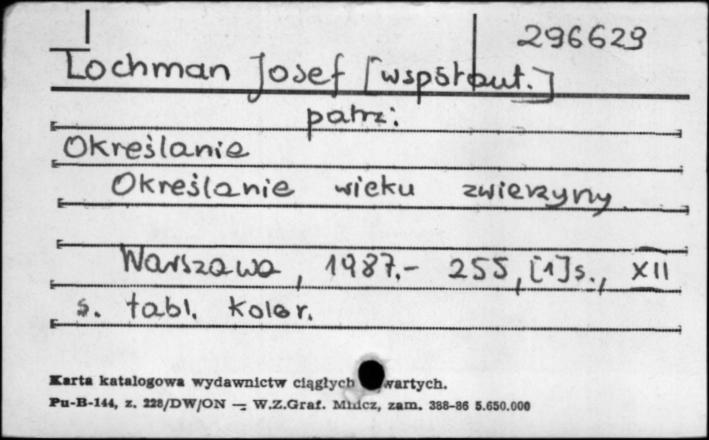 296629
Lochman Josef [współaut.]
patrz.
Określanie
Określanie wieku zwierzyny
Warszawa, 1987.- 255, [1]s., XII
s. tabl. kolor.
Karta katalogowa wydawnictw ciągłych wartych.
Pu-B-144, z. 228/DW/ON — W.Z.Graf. zam. 388-86 5.650.000